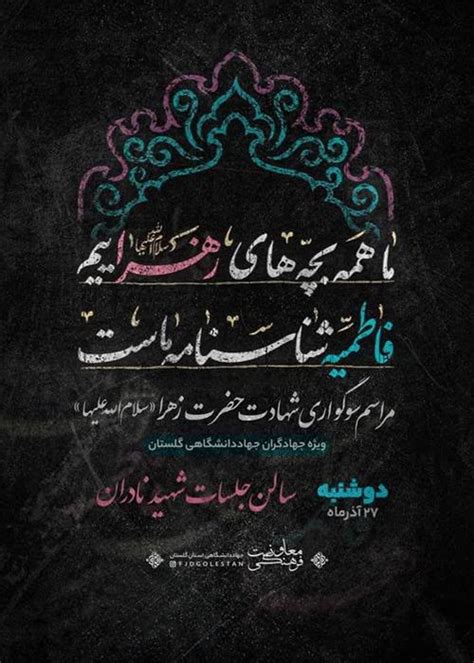 ما همه بچّه های زهراییم
سلام الله علیها
فاطمیّه شناسنامه ماست
مراسم سوگواری شهادت حضرت زهرا «سلام الله علیها»
ویژه جهادگران جهاددانشگاهی گلستان
دوشنبه
۲۷ آذرماه
سالن جلسات شهید نادران
معاونت فرهنگی
جهاددانشگاهی استان گلستان
FJDGOLESTAN